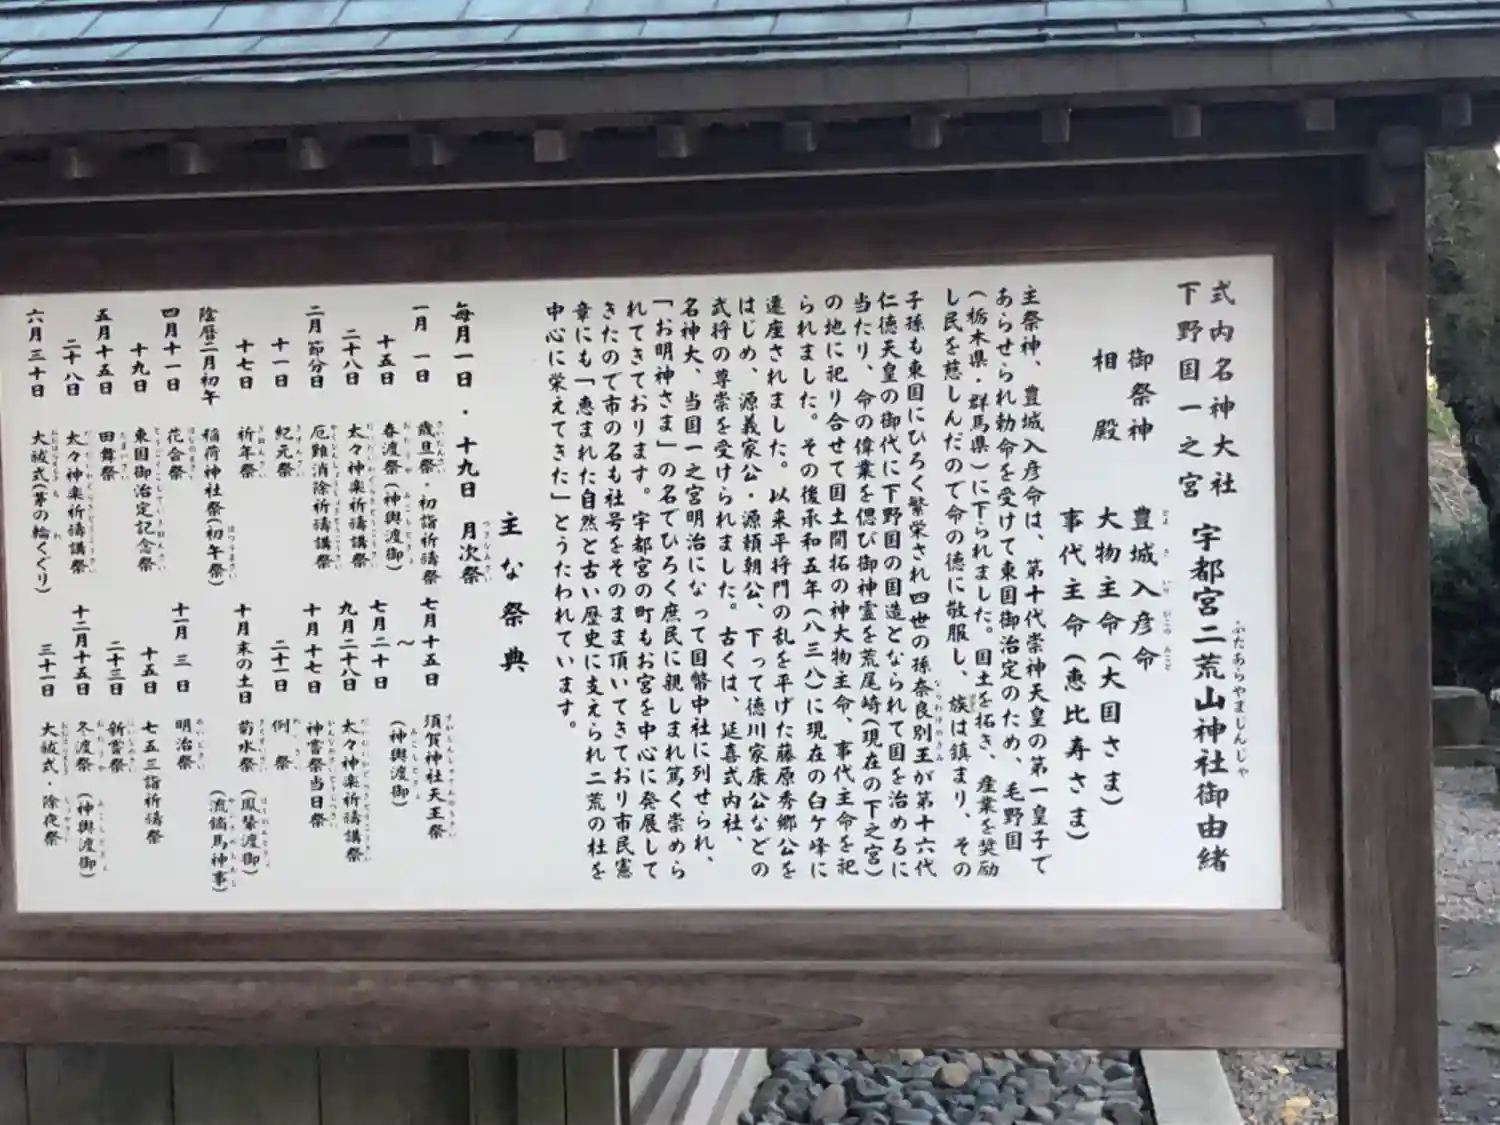 式内名神大社
下野国一之宮
宇都宮二荒山神社御由緒
ふたあらやまじんじゃ
御祭神 豊城入彦命
とよ き いり ひこの みこと
相殿 大物主命(大国さま)
事代主命(恵比寿さま)
主祭神、豊城入彦命は、第十代崇神天皇の第一皇子で
あらせられ勅命を受けて東国御治定のため、毛野国
(栃木県・群馬県)に下られました。国土を拓き、産業を奨励
し民を慈しんだので命の徳に敬服し、族は鎮まり、その
子孫も東国にひろく繁栄され四世の孫奈良別王が第十六代
ならわけのきみ
仁徳天皇の御代に下野国の国造となられて国を治めるに
当たり、命の偉業を偲び御神霊を荒尾崎(現在の下之宮)
の地に祀り合せて国土開拓の神大物主命、事代主命を祀
られました。その後承和五年(八三八)に現在の臼ケ峰に
遷座されました。以来平将門の乱を平げた藤原秀郷公を
はじめ、源義家公・源頼朝公、下って徳川家康公などの
武将の尊崇を受けられました。古くは、延喜式内社、
名神大、当国一之宮明治になって国幣中社に列せられ、
「お明神さま」の名でひろく庶民に親しまれ篤く崇めら
れてきております。宇都宮の町もお宮を中心に発展して
きたので市の名も社号をそのまま頂いてきており市民憲
章にも「恵まれた自然と古い歴史に支えられ二荒の杜を
中心に栄えてきた」とうたわれています。
主な祭典
毎月一日・十九日 月次祭
つきなみさい
一月 一日 歳旦祭・初詣祈禱祭
さいたんさい
十五日 春渡祭(神輿渡御)
おたりや みこしとぎょ
二十八日 太々神楽祈禱講祭
二月節分日 厄難消除祈禱講祭
十一日 紀元祭
きげんさい
十七日 祈年祭
きねんさい
陰暦二月初午 稲荷神社祭(初午祭)
はつうまさい
四月十一日 花会祭
十九日 東国御治定記念祭
五月十五日 田舞祭
たまいさい
二十八日 太々神楽祈禱講祭
六月三十日 大祓式(茅の輪くぐり)
ち わ
七月十五日 須賀神社天王祭
〜
七月二十日 (神輿渡御)
みこしとぎょ
九月二十八日 太々神楽祈禱講祭
十月十七日 神嘗祭当日祭
二十一日 例祭
れいさい
十月末の土日 菊水祭(鳳輦渡御)
(流鏑馬神事)
きくすいさい
十一月三日 明治祭
めいじさい
十五日 七五三詣祈禱祭
二十三日 新嘗祭
にいなめさい
十二月十五日 冬渡祭(神輿渡御)
おたりや みこしとぎょ
三十一日 大祓式・除夜祭